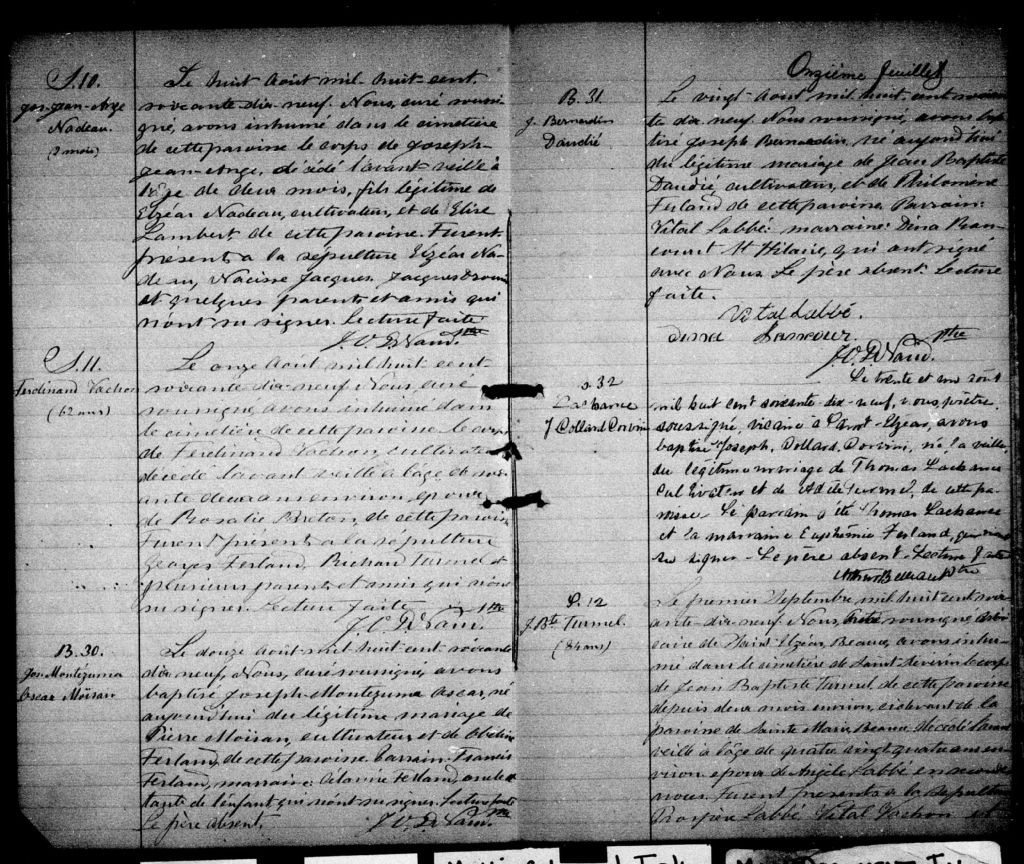 S. 10.
Jos-Jean-Ange
Nadeau.
(2 mois)
Le huit Août mil-huit-cent
soixante-dix-neuf. Nous, curé soussi-
gné, avons inhumé dans le cimetière
de cette paroisse le corps de Joseph-
Jean-Ange, décédé l'avant veille à
l'âge de deux mois, fils légitime de
Elzéar Nadeau, cultivateur, et de Elise
Lambert de cette paroisse. Furent
présent a la sépulture Elzéar Na-
deau, Nacisse Jacques, Jacques
et quelques parents et amis qui
n'ont su signer. Lecture faite
Ptre
S. 11.
Ferdinand Vachon
(62 ans)
Le onze Août mil huit cent
soixante-dix-neuf Nous, curé
soussigné, avons inhumé dans
le cimetière de cette paroisse le corps
de Ferdinand Vachon, cultivateur
décédé l'avant veille à l'âge de soix-
ante deux ans environ, époux
de Rosalie Breton, de cette paroisse
Furent présent a la sépulture
Georges Ferland, Richard Turmel et
plusieurs parents et amis qui n'ont
su signer. Lecture faite
Ptre
B. 30.
Jos Montézuma
Oscar Moisan
Le douze Août mil-huit cent soixante
dix-neuf, Nous, curé soussigné, avons
baptisé Joseph-Montézuma Oscar, né
aujourd'hui du légitime mariage de
Pierre Moisan, cultivateur, et de
Ferland, de cette paroisse. Parrain: Francis
Ferland, marraine: Ferland,
tante de l'enfant, qui n'ont su signer. Lecture faite
Le père absent.
Ptre
Onzième feuillet
B. 31.
J. Bernardin
Daudié
Le vingt Août mil huit-cent soixan-
te dix-neuf. Nous soussigné, avons bap-
tisé Joseph Bernardin, né aujourd'hui
du légitime mariage de Jean Baptiste
Daudié, cultivateur, et de Philomène
Ferland de cette paroisse. Parrain:
Vital Labbé: marraine: Dina Ran-
court St Hilaire, qui ont signé
avec Nous. Le père absent. Lecture
faite.
Vital Labbé.
Ptre
32
Lachance
J Dollard Dorvini
Le trente et un août
mil huit cent soixante-dix-neuf, nous prêtre
soussigné, vicaire à Saint-Elzear, avons
baptisé Joseph, Dollard, Dorvini, né la veille
du légitime mariage de Thomas Lachance
cultivateur et de Adèle Turmel, de cette pa-
roisse. Le parrain a été Thomas Lachance
et la marraine Euphémie Ferland, qui n'ont
su signer. Le père absent. Lecture faite
Ptre
S. 12
J. Bte Turmel.
(84 ans)
Le premier Septembre, mil huit cent soix-
ante-dix-neuf. Nous, soussigné
de Saint Elzéar, Beauce, avons inhu-
mé dans le cimetière de Saint Séverin le corps
de Jean Baptiste Turmel de cette paroisse
depuis deux mois environ, ci-devant de la
paroisse de Sainte Marie, Beauce, décédé l'avant
veille à l'âge de quatre vingt quatre ans en-
viron, époux de Angèle Labbé en secondes
noces. Furent présents à la sépulture
Prospère Labbé Vital Vachon et